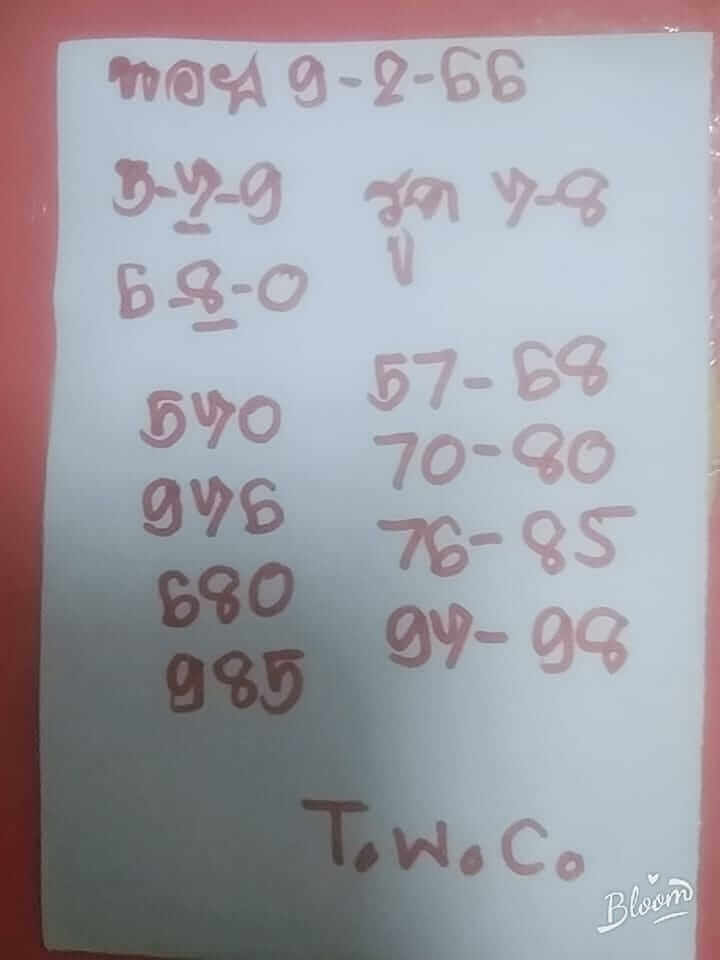 9-2-66
5-7-9
6-8-0
รูด 7-8
570
976
680
985
57-68
70-80
76-85
97-98
T.W.C.
Bloom